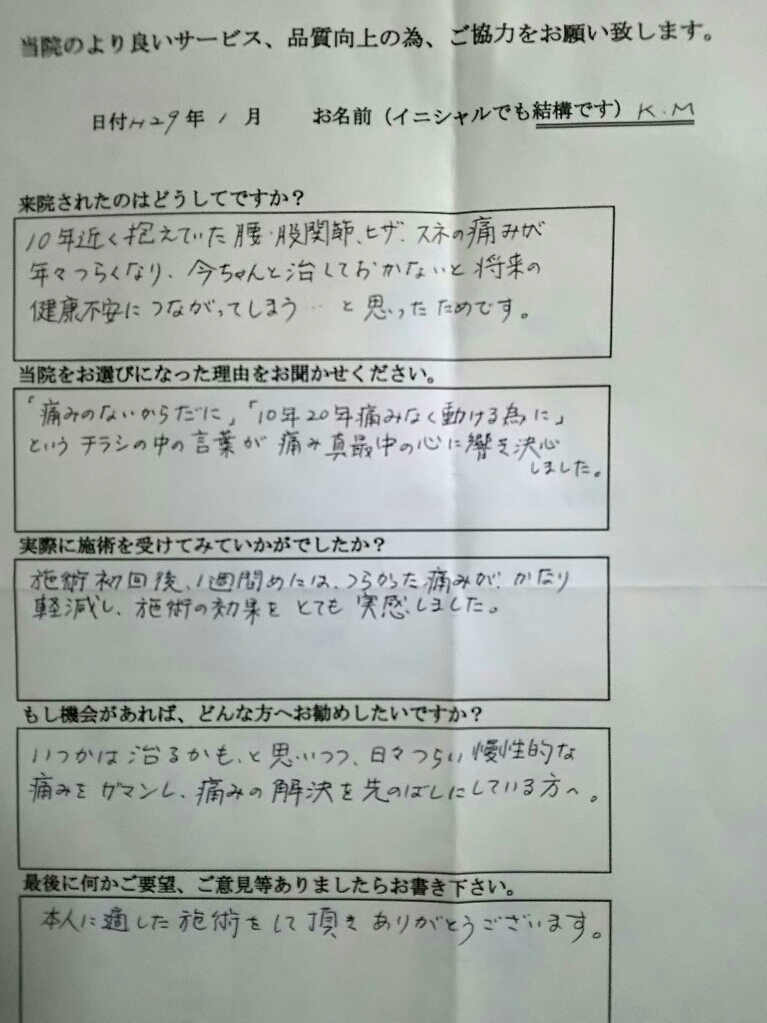 当院のより良いサービス、品質向上の為、ご協力をお願い致します。
日付H29年1月 お名前（イニシャルでも結構です）K.M
来院されたのはどうしてですか？
10年近く抱えていた腰・股関節、ヒザ、スネの痛みが
年々つらくなり、今ちゃんと治しておかないと将来の
健康不安につながってしまう…と思ったためです。
当院をお選びになった理由をお聞かせください。
「痛みのないからだに」「10年20年痛みなく動ける為に」
というチラシの中の言葉が痛み真最中の心に響き決心
しました。
実際に施術を受けてみていかがでしたか？
施術初回後、1週間めには、つらかった痛みが、かなり
軽減し、施術の効果をとても実感しました。
もし機会があれば、どんな方へお勧めしたいですか？
いつかは治るかも、と思いつつ、日々つらい慢性的な
痛みをガマンし、痛みの解決を先のばしにしている方へ。
最後に何かご要望、ご意見等ありましたらお書き下さい。
本人に適した施術をして頂きありがとうございます。